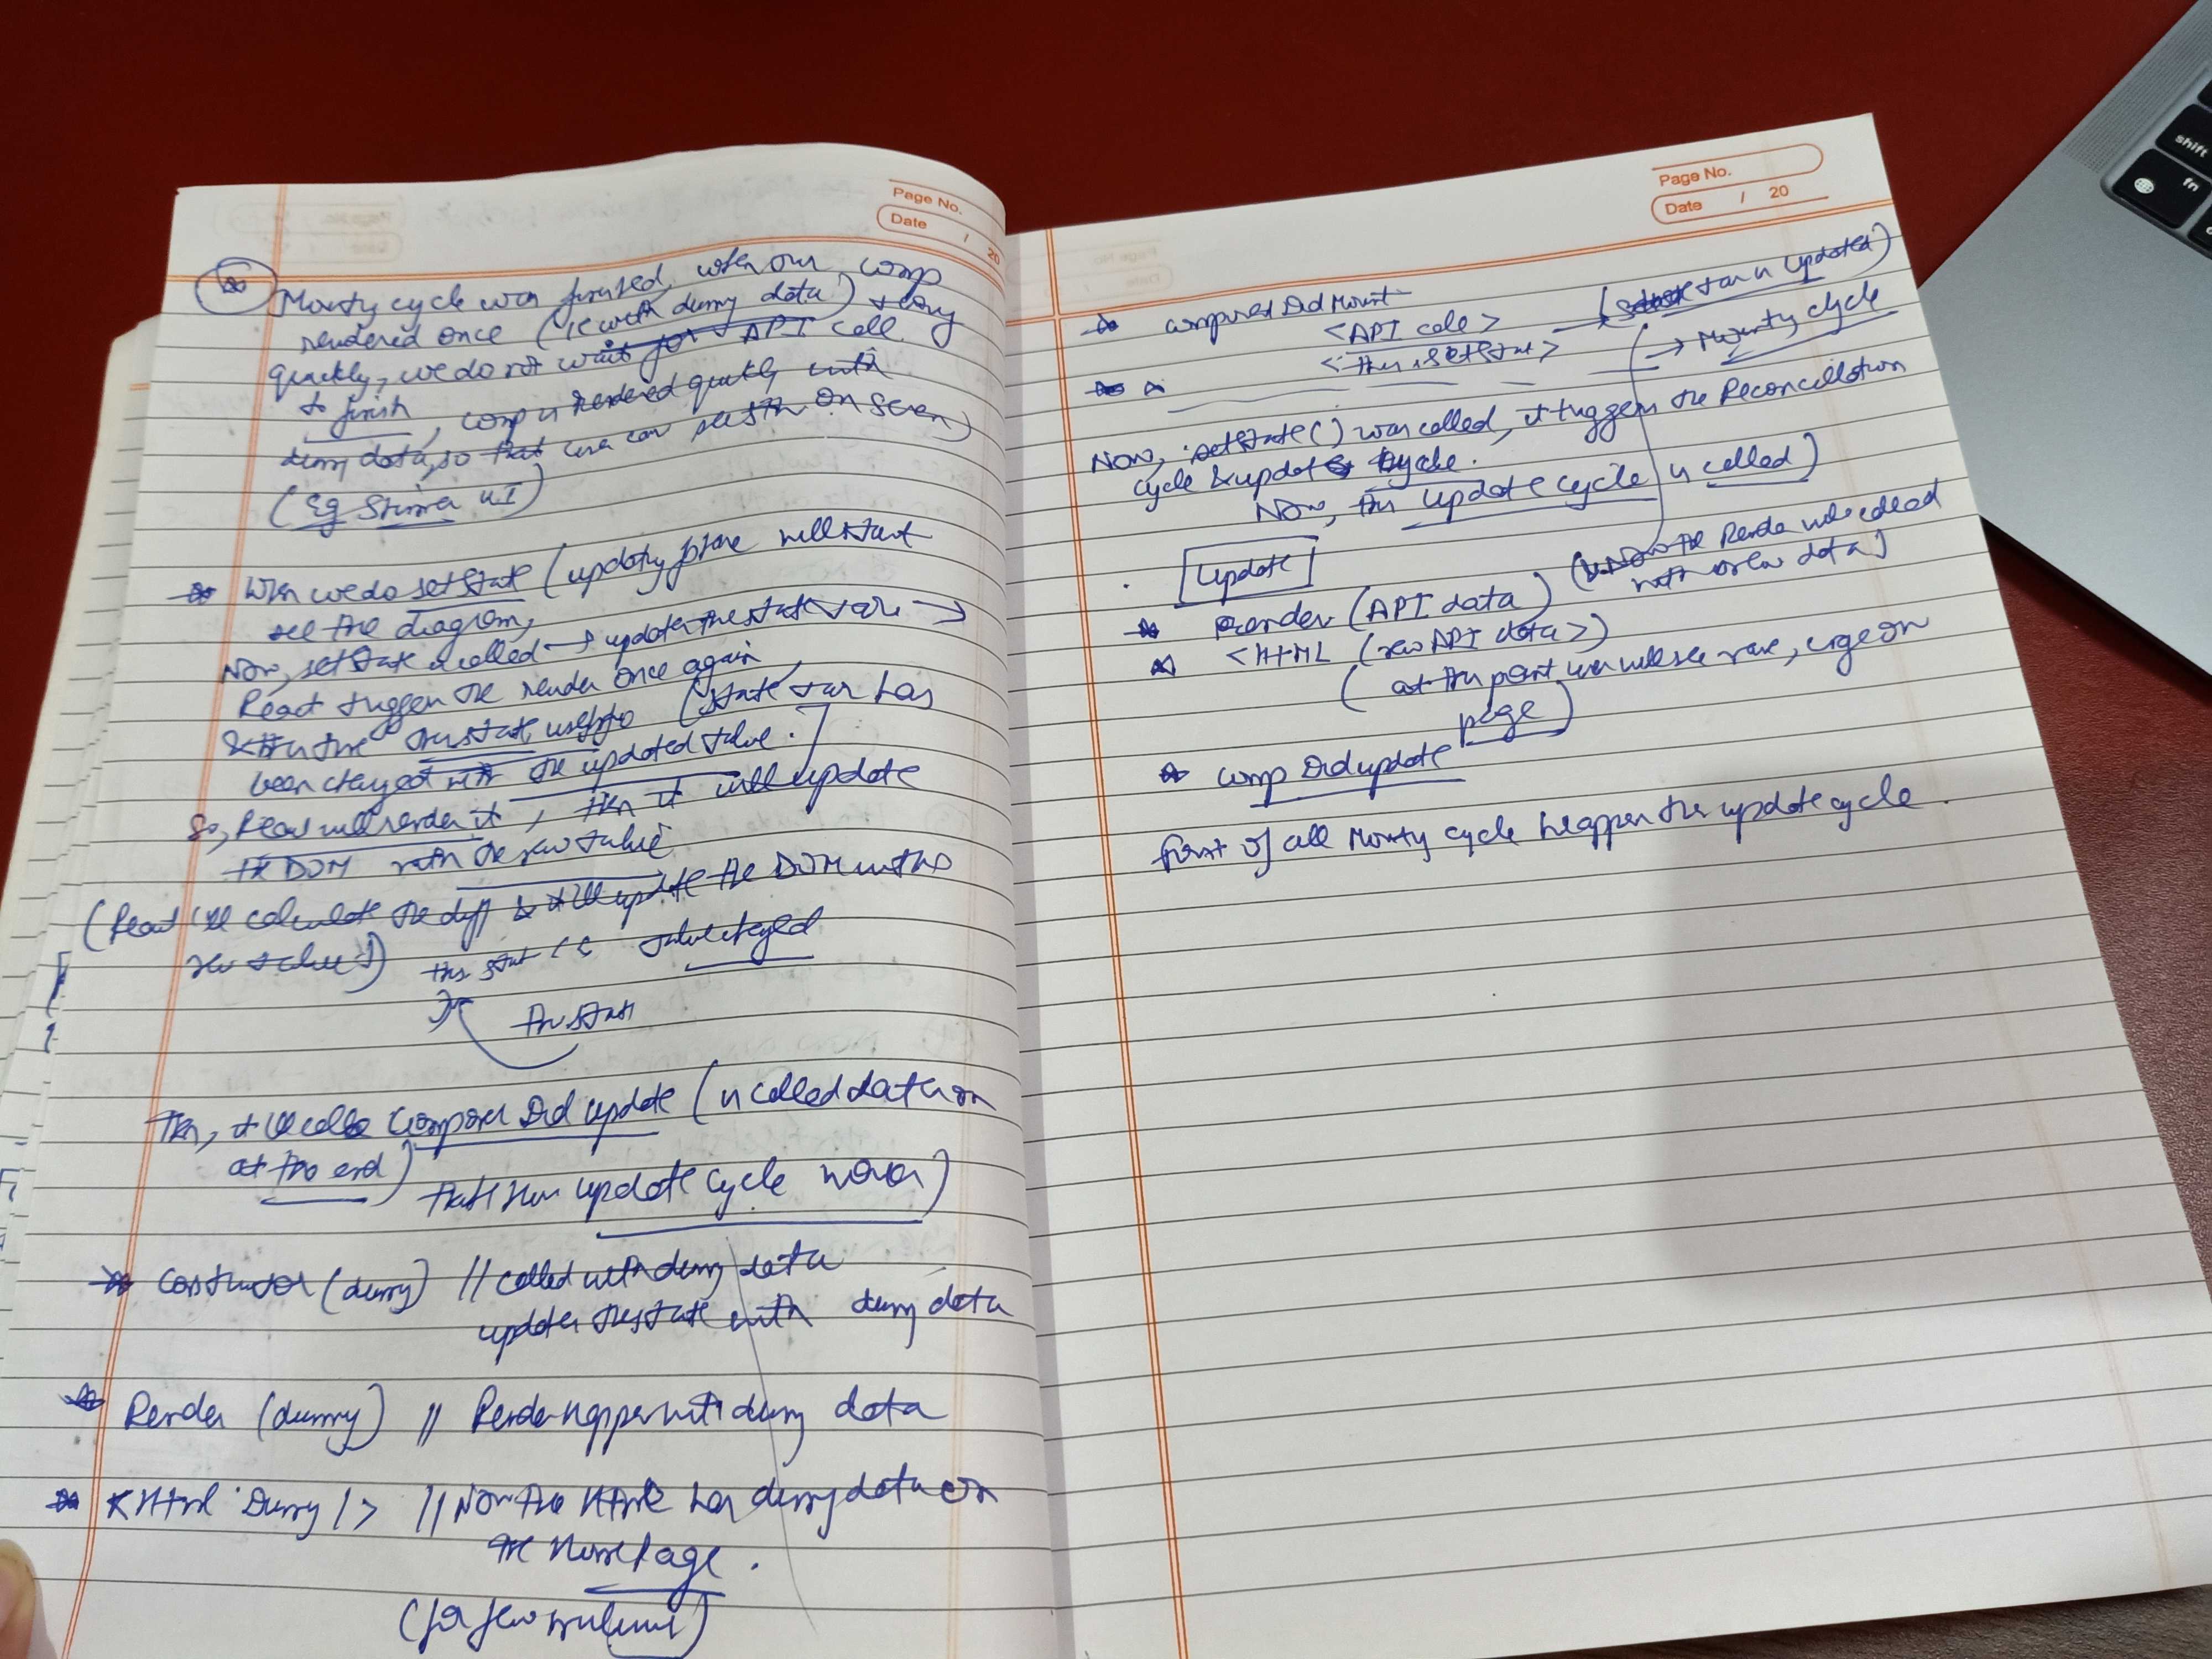 Page No.
Date / 20
Mounty cycle was finished, when our comp
rendered once (ie with dummy data) & very
quickly, we do not wait for API call
to finish, comp is rendered quickly with
dummy data, so that user can see sth on screen)
(Eg Shimmer UI)
When we do setState (updating phase will start
see the diagram,
Now, setState is called → updates the state var →
React trigger the render once again
(state var has
been changed with the updated value.
So, React will render it, then it will update
the DOM with the new value
(React 'll calculate the diff & it'll update the DOM with the
new value)
this.state is value changed
this.state
Then, it'll call Component Did update (is called
at the end)
that's how update cycle
Constructor (dummy) // Called with dummy data
updates the state with dummy data
Render (dummy) // Render happens with dummy data
<Html Dummy /> // Now the Html has dummy data on
the HomePage.
(for few
Page No.
Date / 20
Component Did Mount
<API call>
<this.setState> → (state var is Updated)
→ Mounty cycle
Now, setState() was called, it triggers the Reconcillation
cycle & update cycle.
Now, the update cycle is called)
Update
Render (API data) (Now the Render will be called
with new data)
<HTML (new API data>)
(at this point user will see name, on
page)
comp Did update
first of all Mounty cycle happen then update cycle.
shift
fn